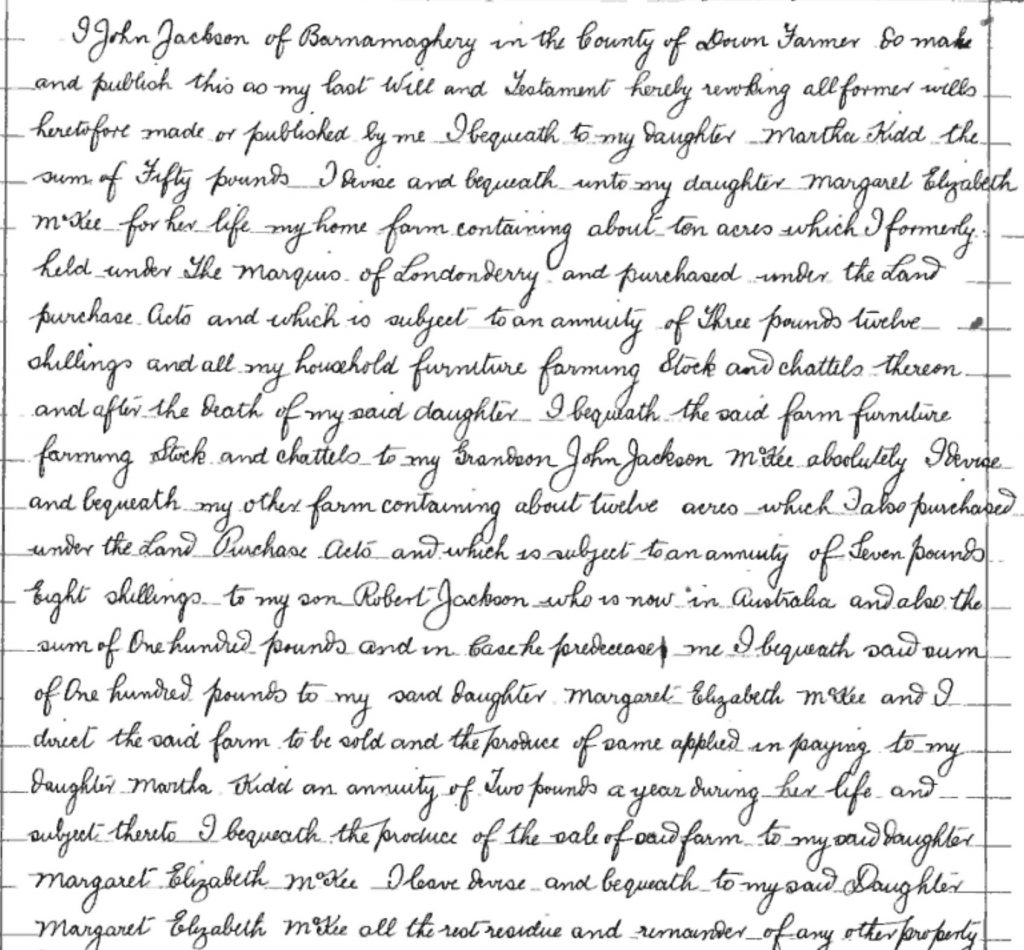 I John Jackson of Barnamaghery in the County of Down Farmer do make
and publish this as my last Will and Testament hereby revoking all former wills
heretofore made or published by me I bequeath to my daughter Martha Kidd the
sum of Fifty pounds I devise and bequeath unto my daughter Margaret Elizabeth
McKee for her life my home farm containing about ten acres which I formerly
held under The Marquis of Londonderry and purchased under the Land
purchase Acts and which is subject to an annuity of Three pounds twelve
shillings and all my household furniture farming Stock and chattels thereon
and after the death of my said daughter I bequeath the said farm furniture
farming Stock and chattels to my Grandson John Jackson McKee absolutely I devise
and bequeath my other farm containing about twelve acres which I also purchased
under the Land Purchase Acts and which is subject to an annuity of Seven pounds
Eight shillings to my son Robert Jackson who is now in Australia and also the
sum of One hundred pounds and in Case he predecease me I bequeath said sum
of One hundred pounds to my said daughter Margaret Elizabeth McKee and I
direct the said farm to be sold and the produce of same applied in paying to my
daughter Martha Kidd an annuity of Two pounds a year during her life and
subject thereto I bequeath the produce of the sale of said farm to my said daughter
Margaret Elizabeth McKee I leave devise and bequeath to my said Daughter
Margaret Elizabeth McKee all the rest residue and remainder of any other property